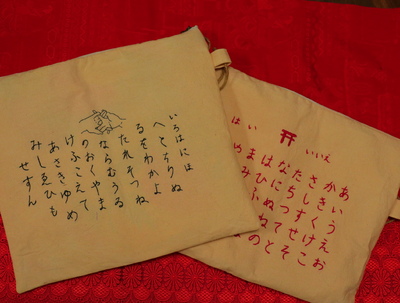 いろはにほ
へとちりぬ
るをわかよ
たれそつね
ならむうゐ
のおくやま
けふこえて
あさきゆめ
みしゑひも
せすん
いいえ
はい
あいうえお
かきくけこ
さしすせそ
たちつてと
なにぬねの
はひふ
まみ
や